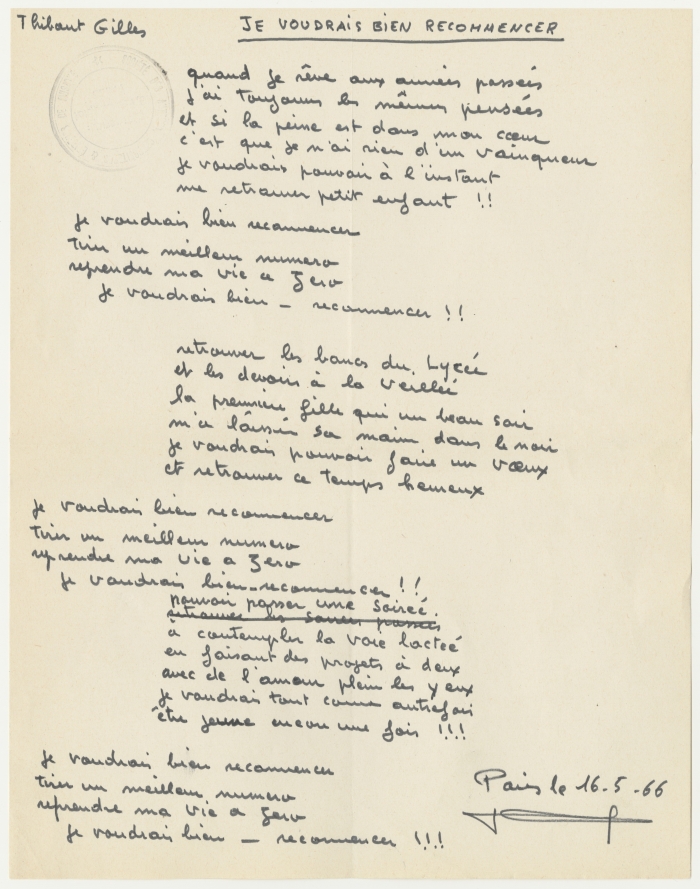 Thibaut Gilles
JE VOUDRAIS BIEN RECOMMENCER
quand je rêve aux années passées
j'ai toujours les mêmes pensées
et si la peine est dans mon cœur
c'est que je n'ai rien d'un vainqueur
je voudrais pouvoir à l'instant
me retrouver petit enfant !!
je voudrais bien recommencer
tirer un meilleur numero
reprendre ma vie a Zero
je voudrais bien – recommencer !!
retrouver les bancs du Lycée
et les devoirs à la Veillée
la première fille qui un beau soir
m'a laissé sa main dans le noir
je voudrais pouvoir faire un vœux
et retrouver ce temps heureux
je voudrais bien recommencer
tirer un meilleur numero
reprendre ma vie a Zero
je voudrais bien-recommencer !!
pouvoir passer une soirée.
retrouver les soirées passées
à contempler la voie lactée
en faisant des projets à deux
avec de l'amour plein les yeux
je voudrais tout comme autrefois
être jeune encore une fois !!!
je voudrais bien recommencer
tirer un meilleur numero
reprendre ma vie a Zero
je voudrais bien – recommencer !!!
Paris le 16-5-66